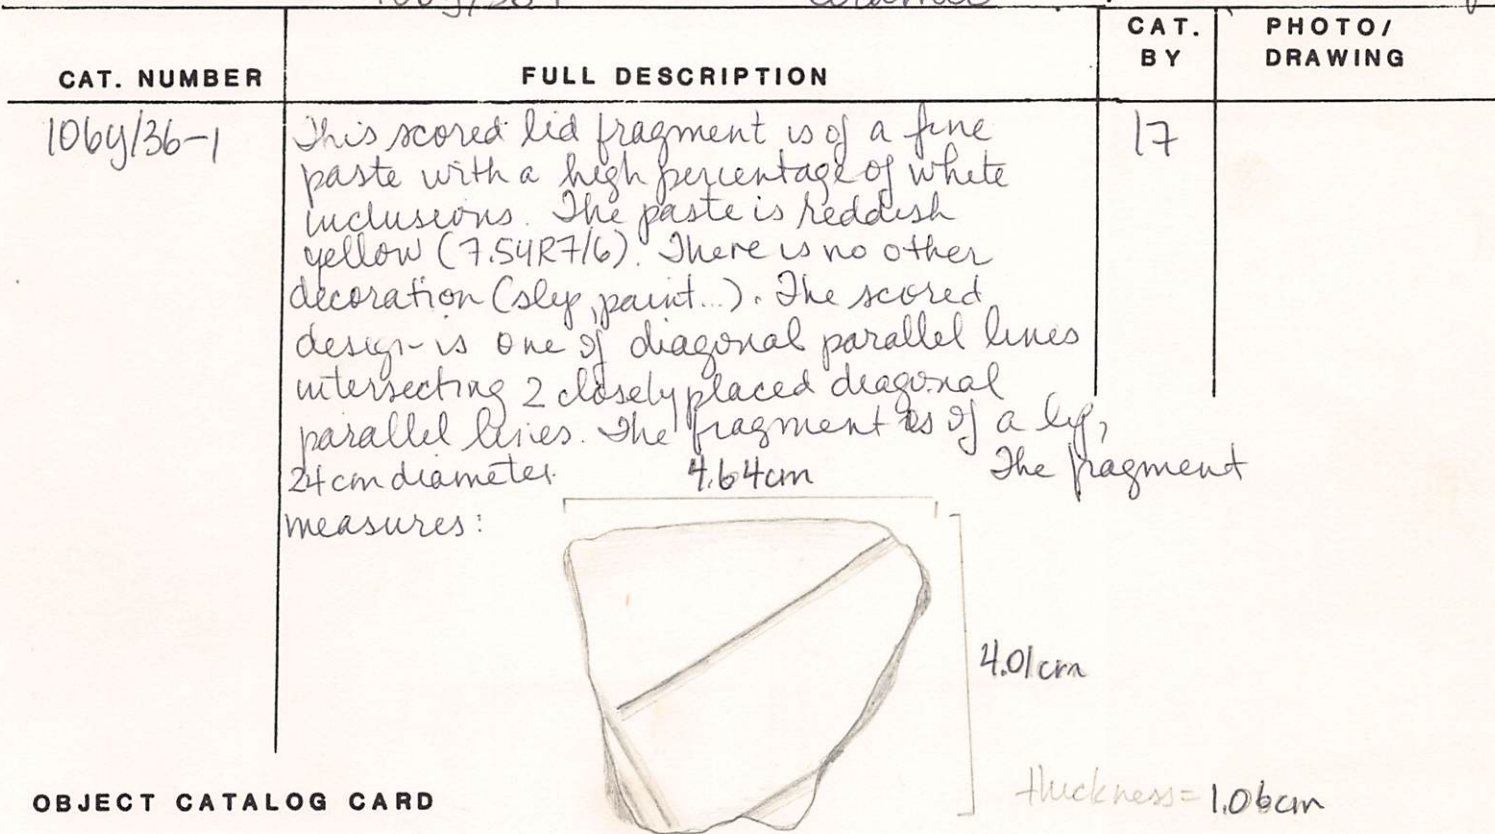 CAT. NUMBER FULL DESCRIPTION CAT. BY PHOTO/ DRAWING
106y/36-1 This scored lid fragment is of a fine 17
paste with a high percentage of white
inclusions. The paste is reddish
yellow (7.5YR7/6). There is no other
decoration (slip, paint...). The scored
design is one of diagonal parallel lines
intersecting 2 closely placed diagonal
parallel lines. The fragment is of a lip,
24cm diameter. 4.64cm The fragment
measures:
4.01cm
thickness = 1.06cm
OBJECT CATALOG CARD